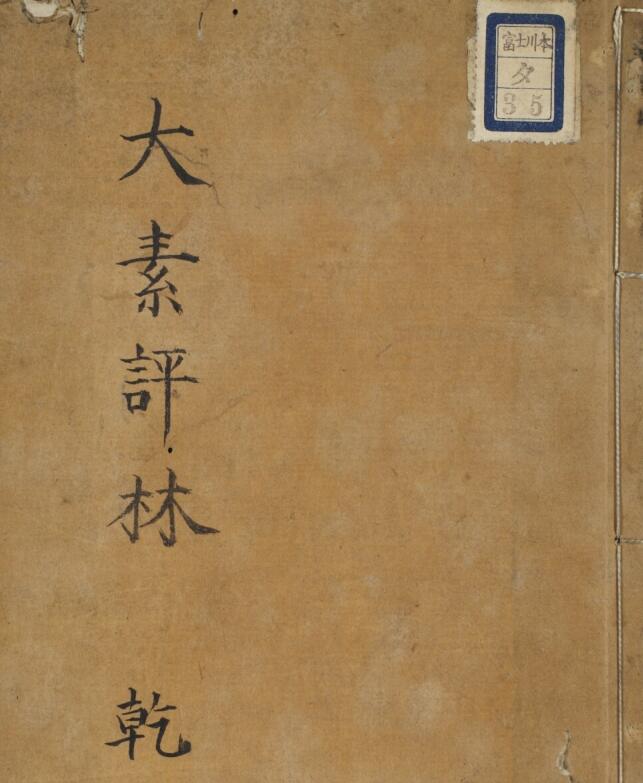 富士川本
タ
35
大素評林 乾